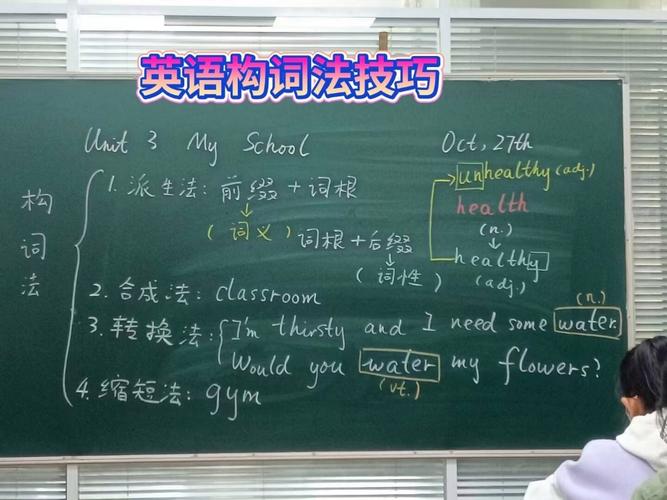 英语构词法技巧
Unit 3 My School
Oct, 27th
构词法
1. 派生法: 前缀 + 词根
(词义)
词根 + 后缀
(词性)
unhealthy (adj.)
health
(n.)
healthy
(adj.)
2. 合成法: classroom
3. 转换法: I'm thirsty and I need some water.
(n.)
Would you water my flowers?
(vt.)
4. 缩短法: gym